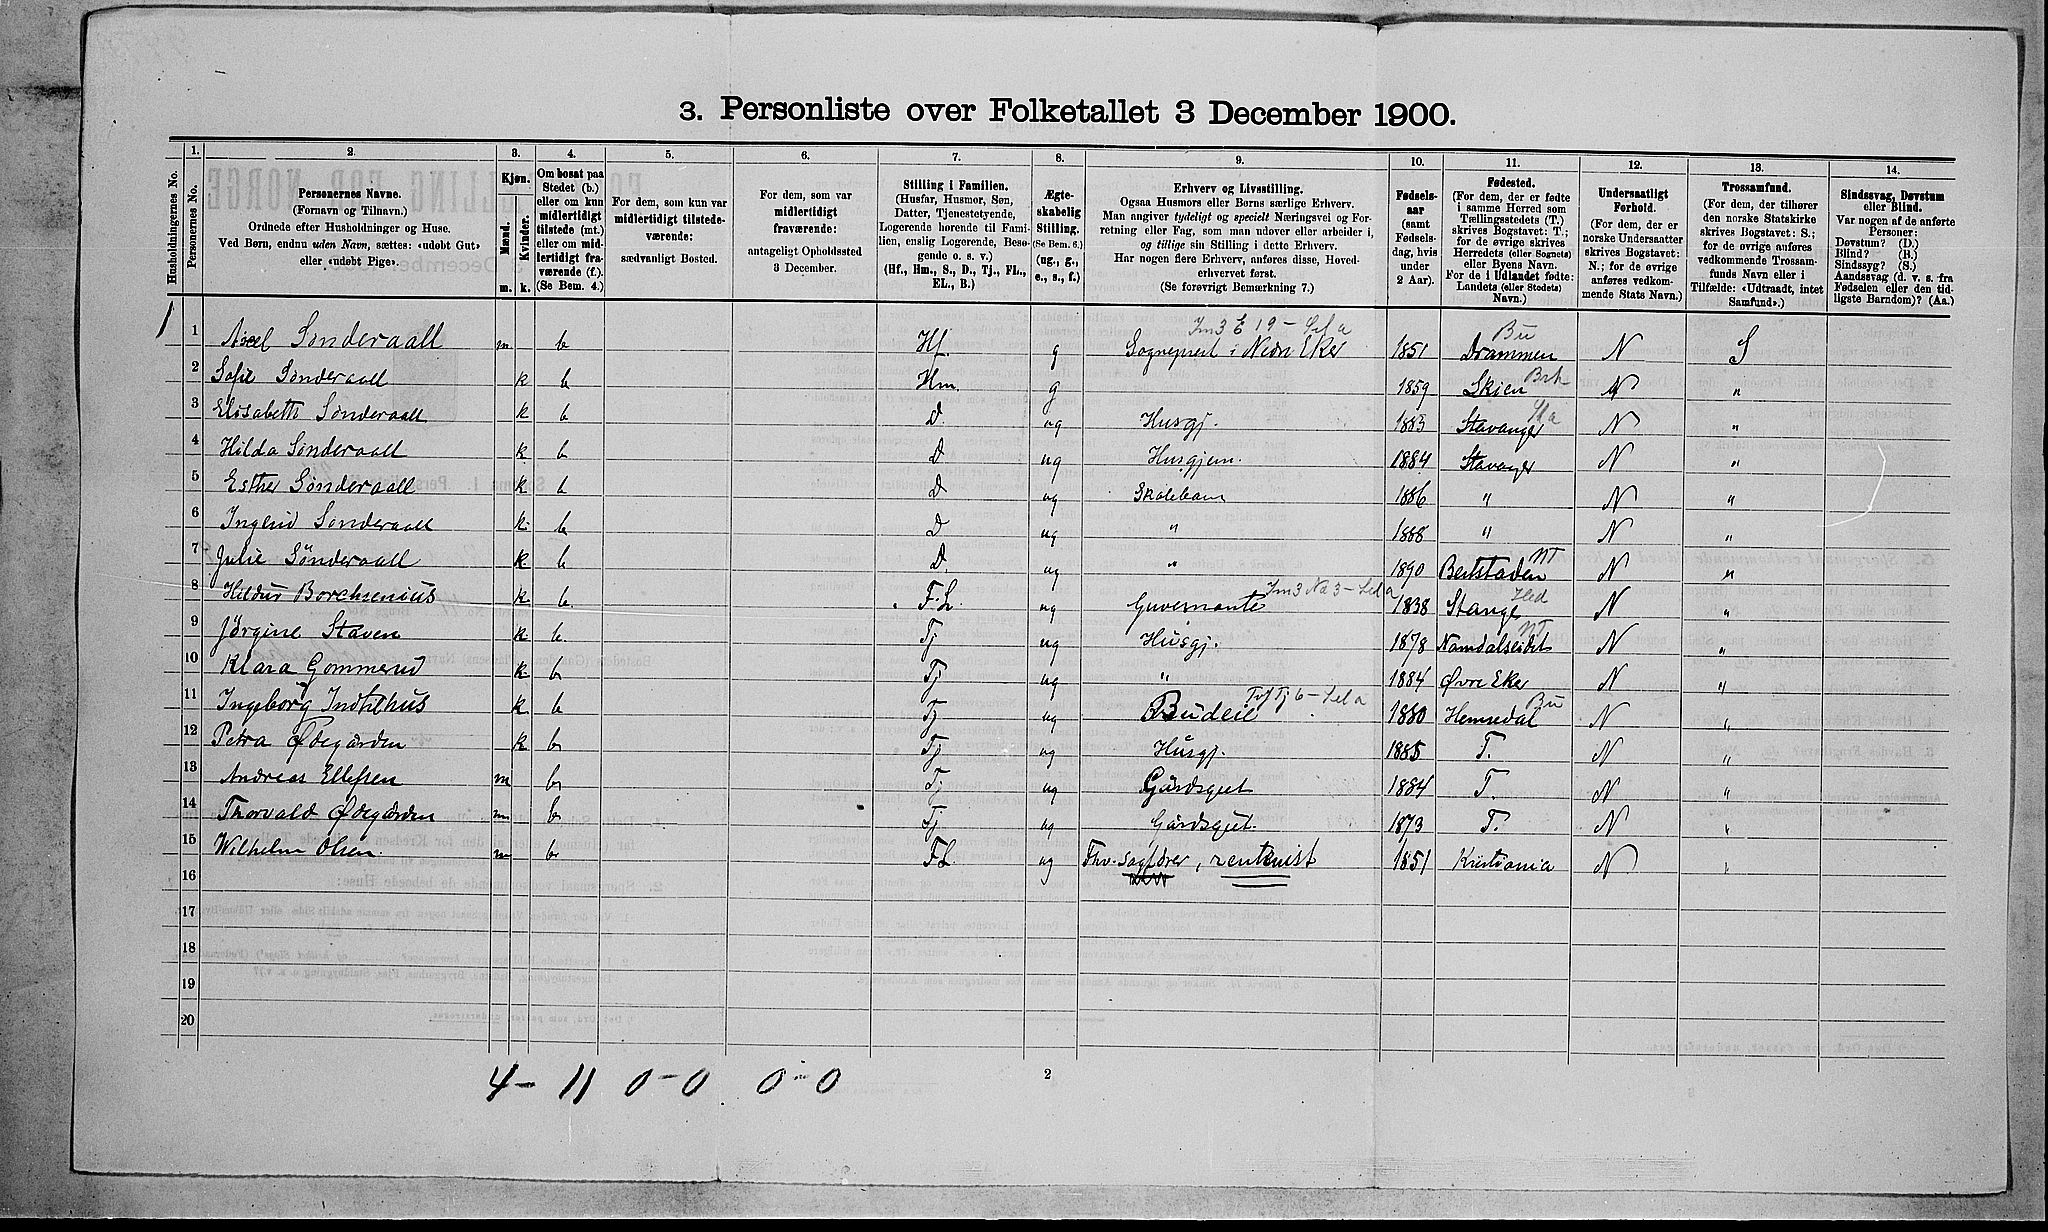 3. Personliste over Folketallet 3 December 1900.
1. 2. 3. 4. 5. 6. 7. 8. 9. 10. 11. 12. 13. 14.
Husholdningernes No.
Personernes No.
Personernes Navne.
(Fornavn og Tilnavn.)
Ordnede efter Husholdninger og Huse.
Ved Børn, endnu uden Navn, sættes: «udøbt Gut»
eller «udøbt Pige».
Kjøn.
Mænd. Kvinder.
m. k.
Om bosat paa
Stedet (b.)
eller om kun
midlertidigt
tilstede (mt.)
eller om mid-
lertidigt fra-
værende (f.)
(Se Bem. 4.)
For dem, som kun var
midlertidigt tilstede-
værende:
sædvanligt Bosted.
For dem, som var
midlertidigt
fraværende:
antageligt Opholdssted
3 December.
Stilling i Familien.
(Husfar, Husmor, Søn,
Datter, Tjenestetyende,
Logerende hørende til Fami-
lien, enslig Logerende, Besø-
gende o. s. v.)
(Hf., Hm., S., D., Tj., FL.,
EL., B.)
Ægte-
skabelig
Stilling.
(Se Bem. 6.)
(ug., g.,
e., s., f.)
Erhverv og Livsstilling.
Ogsaa Husmors eller Børns særlige Erhverv.
Man angiver tydeligt og specielt Næringsvei og For-
retning eller Fag, som man udøver eller arbeider i,
og tillige sin Stilling i dette Erhverv.
Har nogen flere Erhverv, anføres disse, Hoved-
erhvervet først.
(Se forøvrigt Bemærkning 7.)
Fødsels-
aar
(samt
Fødsels-
dag, hvis
under
2 Aar).
Fødested.
(For dem, der er fødte
i samme Herred som
Tællingsstedets (T.)
skrives Bogstavet: T.;
for de øvrige skrives
Herredets (eller Sognets)
eller Byens Navn.
For de i Udlandet fødte:
Landets (eller Stedets)
Navn.)
Undersaatligt
Forhold.
(For dem, der er
norske Undersaatter
skrives Bogstavet:
N.; for de øvrige
anføres vedkom-
mende Stats Navn.)
Trossamfund.
(For dem, der tilhører
den norske Statskirke
skrives Bogstavet: S.;
for de øvrige anføres
vedkommende Trossam-
funds Navn eller i
Tilfælde: «Udtraadt, intet
Samfund».)
Sindssvag, Døvstum
eller Blind.
Var nogen af de anførte
Personer:
Døvstum? (D.)
Blind? (B.)
Sindssyg? (S.)
Aandssvag (d. v. s. fra
Fødselen eller den tid-
ligste Barndom)? (Aa.)
1 1 Axel Sønderaall m b Hf. g Sognepræst i Nedre Eker 1851 Drammen Bu N S
2 Sofie Sønderaall k b Hm. g 1859 Skien N "
3 Elisabeth Sønderaall k b D. ug Husgj. 1883 Stavanger N "
4 Hilda Sønderaall k b D ug Husgjern. 1884 Stavanger N "
5 Esther Sønderaall k b D ug Skolebarn 1886 " N "
6 Ingrid Sønderaall k b D ug " 1888 " N "
7 Julie Sønderaall k b D. ug " 1890 NT N "
8 Hildur Borchsenius k b F.L. ug Guvernante 1838 Stange Hed N "
9 Jørgine Staven k b Tj ug Husgj. 1878 Namdalseidet NT N "
10 Klara Gommerud k b Tj ug " 1884 Øvre Eker N "
11 Ingeborg k b Tj ug Budeie 1880 Hemsedal Bu N "
12 Petra Ødegården k b Tj ug Husgj. 1885 T. N "
13 Andreas Ellefsen m b Tj ug Gårdsgut 1884 T. N "
14 Thorvald Ødegården m b Tj ug Gårdsgut. 1873 T. N "
15 Wilhelm Olsen. m b F.L. ug Fhv. Sagfører, rentenist 1851 Kristiania N "
16
17
18
19
20
4 - 11 0 - 0 0 - 0
2